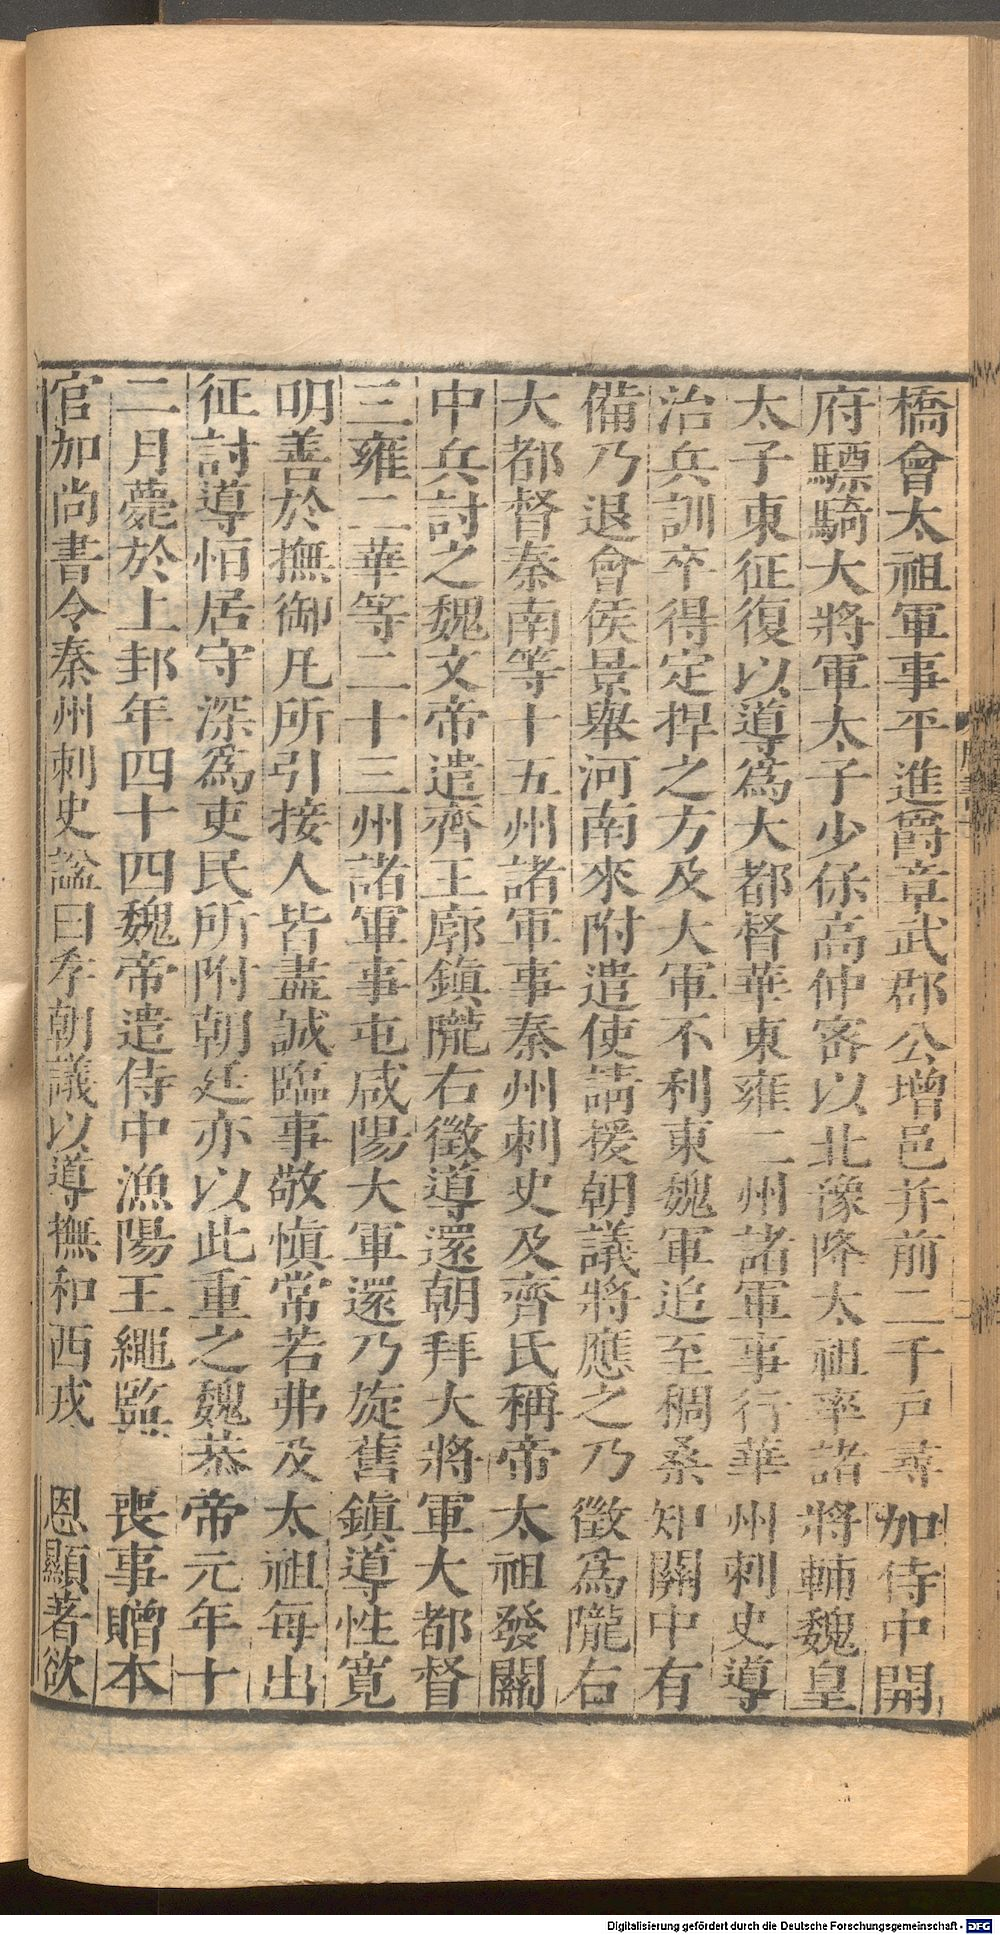 橋會太祖軍事平進爵章武郡公增邑并前二千戸尋加侍中開
府驃騎大將軍太子少保高仲宻以北豫降太祖率諸將輔魏皇
太子東征復以導爲大都督華東雍二州諸軍事行華州刺史導
治兵訓卒得定捍之方及大軍不利東魏軍追至稠桑知關中有
備乃退會侯景舉河南來附遣使請援朝議將應之乃徵爲隴右
大都督秦南等十五州諸軍事秦州刺史及齊氏稱帝太祖發關
中兵討之魏文帝遣齊王廓鎮隴右徵導還朝拜大將軍大都督
三雍二華等二十三州諸軍事屯咸陽大軍還乃旋舊鎮導性寛
明善於撫御凡所引接人皆盡誠臨事敬慎常若弗及太祖每出
征討導恒居守深爲吏民所附朝廷亦以此重之魏恭帝元年十
二月薨於上邽年四十四魏帝遣侍中漁陽王繩監喪事贈本
官加尚書令秦州刺史諡曰孝朝議以導撫和西戎恩顯著欲
Digitalisierung gefördert durch die Deutsche Forschungsgemeinschaft - DFG